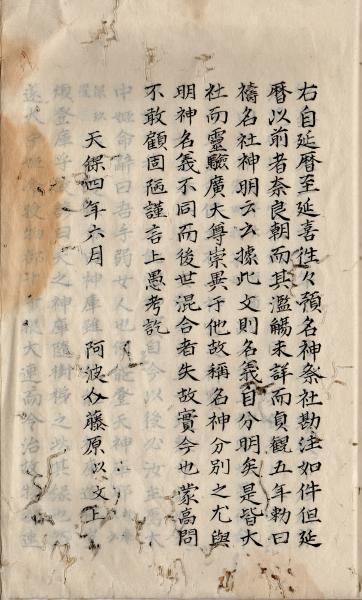 右自延暦至延喜徃々預名神祭社勘注如件但延
暦以前者奈良朝而其濫觴未詳而貞観五年勅曰
禱名社神明云云據此文則名義自分明矣是皆大
社而靈驗廣大尊崇異于他故稱名神分別之尤與
明神名義不同而後世混合者失故實今也蒙高問
不敢顧固陋謹言上愚考訖
天保四年六月
阿波介藤原以文上